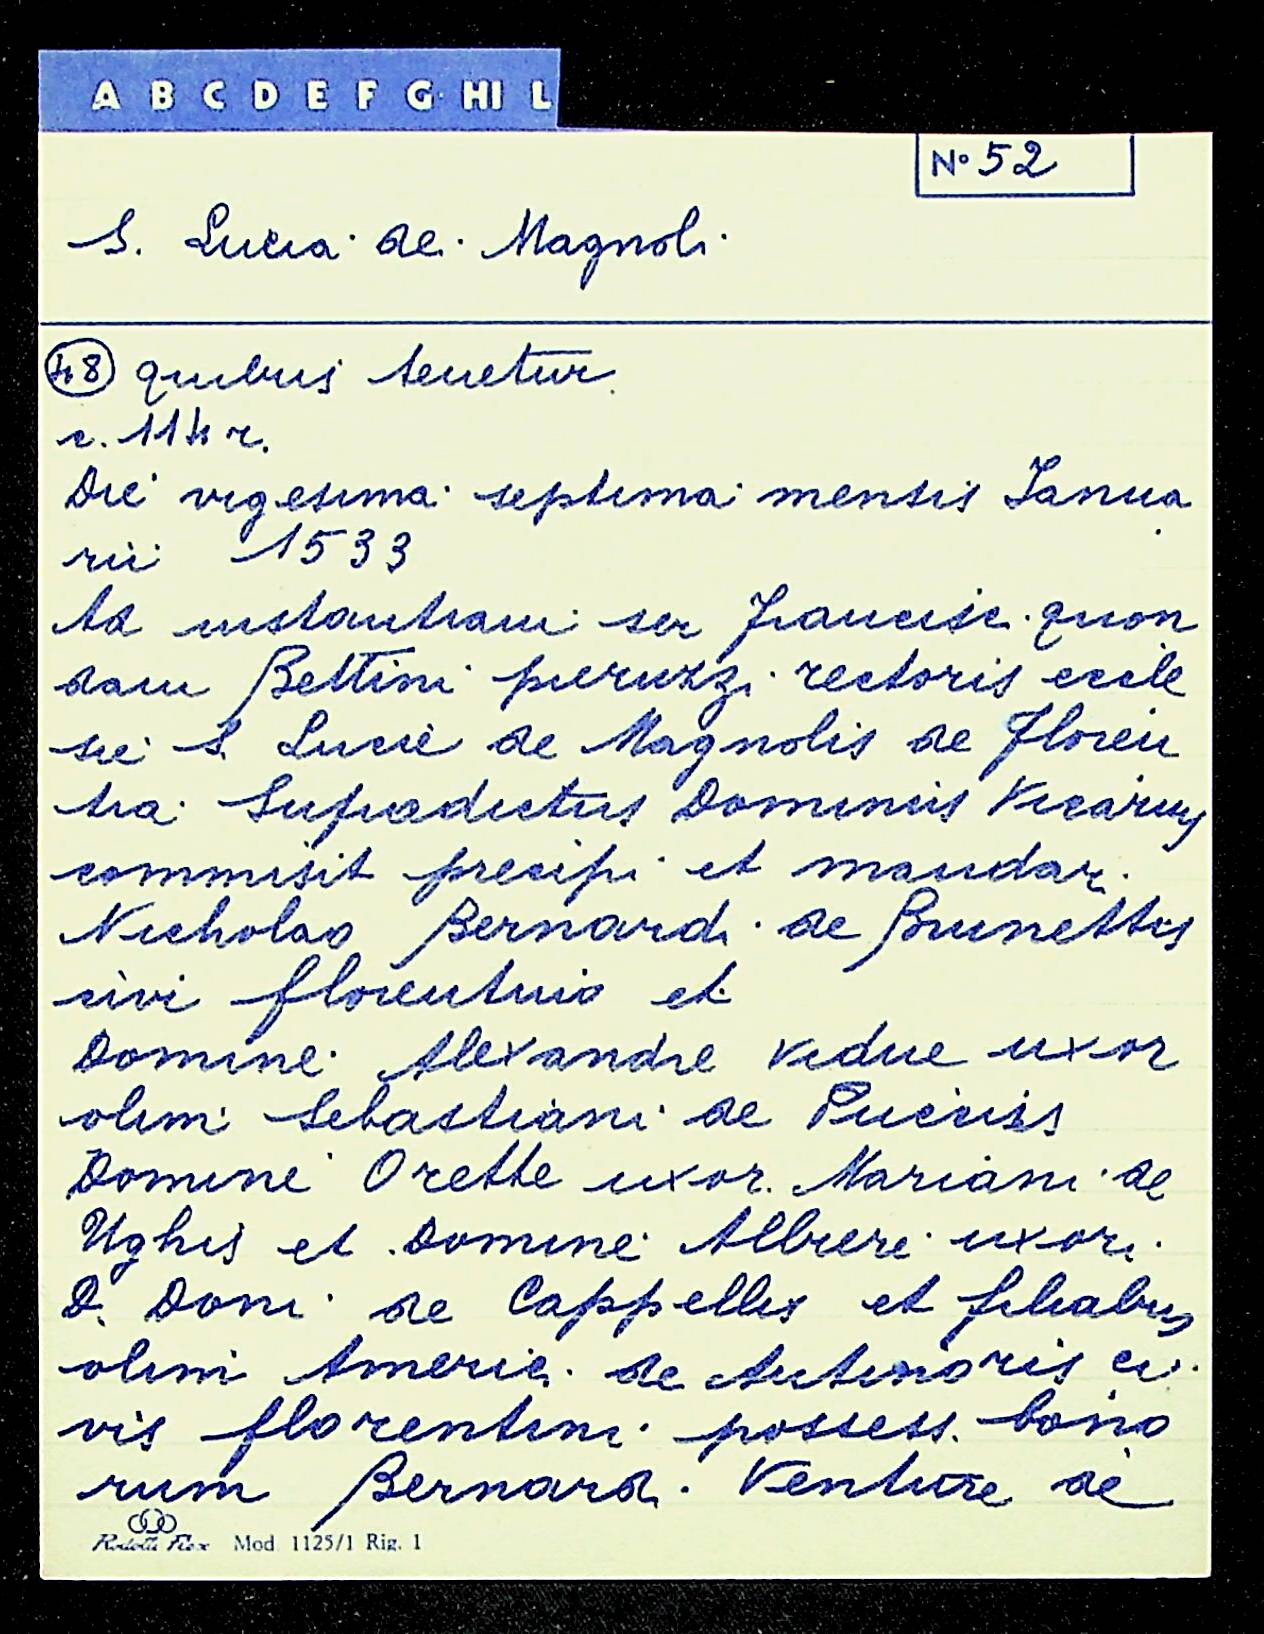 A B C D E F G HI L
N° 52
S. Lucia de Magnoli
48 quibus tenetur
c. 114 r.
Die vigesima septima mensis Janua
rii 1533
Ad instantiam ser Francisci quon
dam Bettini peruzzi rectoris eccle
sie S. Lucie de Magnolis de Floren
tia Supradictus Dominus Vicarius
commisit precipi et mandari
Nicholao Bernardi de Brunettis
civi florentino et
Domine Alexandre vidue uxor
olim Sebastiani de Pucciis
Domine Orette uxor. Mariani de
Ughis et Domine Albiere uxori
D. Doni de Cappellis et filiabus
olim Americi de Antinoris ci
vis florentini possess. bono
rum Bernardi Venture de
Mod. 1125/1 Rig. 1